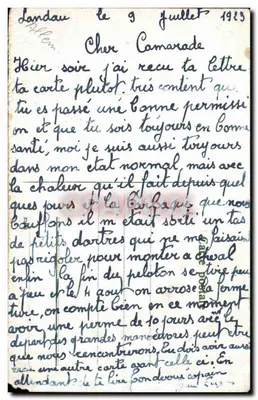 Landau le 9 Juillet 1929
Allem
Cher Camarade
Hier soir j'ai recu ta lettre
ta carte plutot, trés content que
tu es passé une bonne permissi
on et que tu sois toujours en bonne
santé, moi je suis aussi toujours
dans mon état normal, mais avec
la chaleur qu'il fait depuis quel
ques jours et la que nous
bouffons il m'était sorti un tas
de petits dartres qui ne me faisaient
pas rigoler pour monter a cheval
enfin la fin du peloton se tire peu
a peu et le 4 aout on arrose la ferme
ture, on compte bien en ce moment
avoir une perme de 10 jours avec le
depart des grandes manœuvres peut etre
que nous rencontrerons, tu dois avoir aussi
recu une autre carte avant celle ci. En
attendant de te lire ton copain
Carte postale